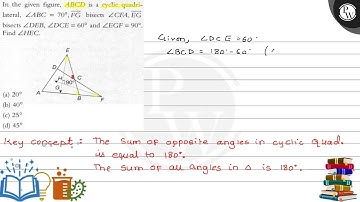 In the given figure, ABCD is a cyclic quadri-
lateral, ∠ABC = 70°, FG bisects ∠CFA, EG
bisects ∠DEB, ∠DCE = 60° and ∠EGF = 90°.
Find ∠HEC.
E
D
H
C
90°
G
A
B
F
(a) 20°
(b) 40°
(c) 25°
(d) 45°
Given, ∠DCE = 60°
∠BCD = 180° - 60° (
Key concept : The Sum of opposite angles in cyclic Quad.
is equal to 180°.
The sum of all angles in Δ is 180°.